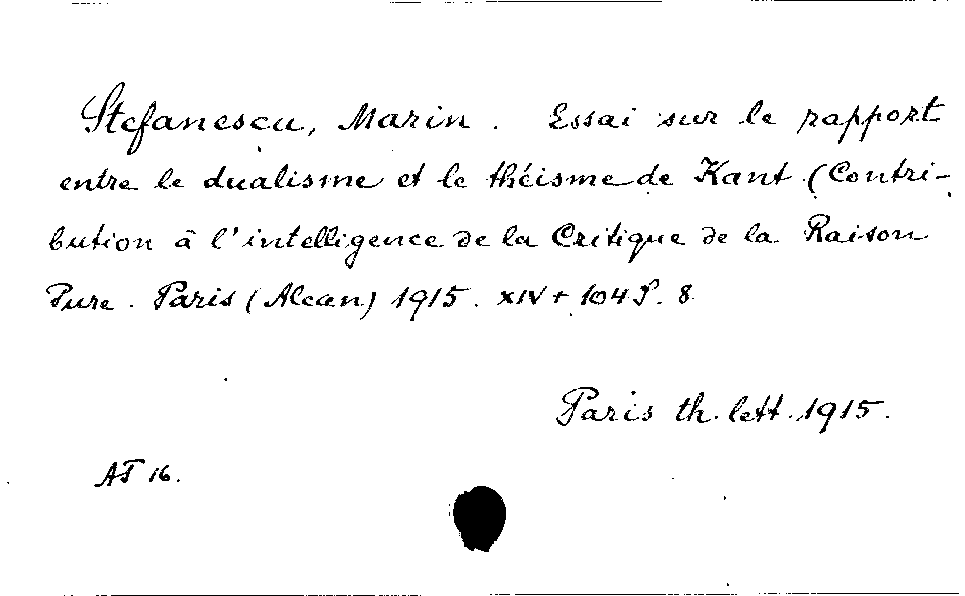 Stefanescu, Marin. Essai sur le rapport
entre le dualisme et le théisme de Kant (Contri-
bution à l'intelligence de la Critique de la Raison
Pure. Paris (Alcan) 1915. XIV + 104 P. 8
Paris th. lett. 1915.
AT 16.